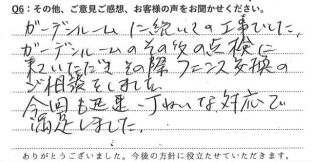 Q6：その他、ご意見ご感想、お客様の声をお聞かせください。
ガーデンルームに続いての工事でした。
ガーデンルームのその後の点検に
来ていただきその際フェンス交換の
ご相談をしました。
今回も迅速・丁ねいな対応で
満足しました。
ありがとうございました。今後の方針に役立たせていただきます。